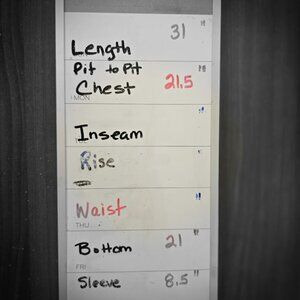 Length 31 "
Pit to Pit "
Chest 21.5
MON
Inseam "
Rise "
Waist "
THU
Bottom 21 "
FRI
Sleeve 8.5 "